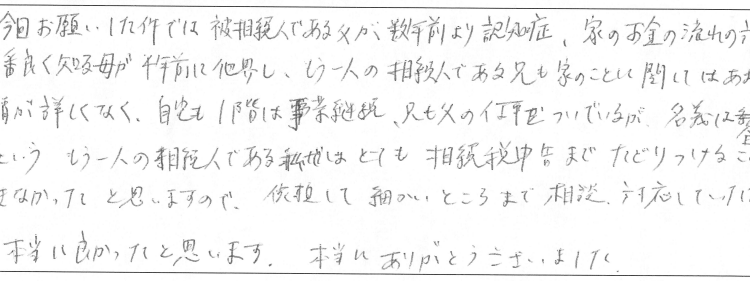 今回お願いした件では被相続人である父が、数年前より認知症、家のお金の流れの
番良く知る母が半年前に他界し、もう一人の相続人である兄も家のことに関してはあ
情が詳しくなく、自宅も1階は事業継続、兄も父の仕事をついでいるが、名義は
という もう一人の相続人である私ではとても 相続税申告までたどりつけるこ
きなかったと思いますので、依頼して細かいところまで相談、対応していただ
本当に良かったと思います。 本当にありがとうございました。